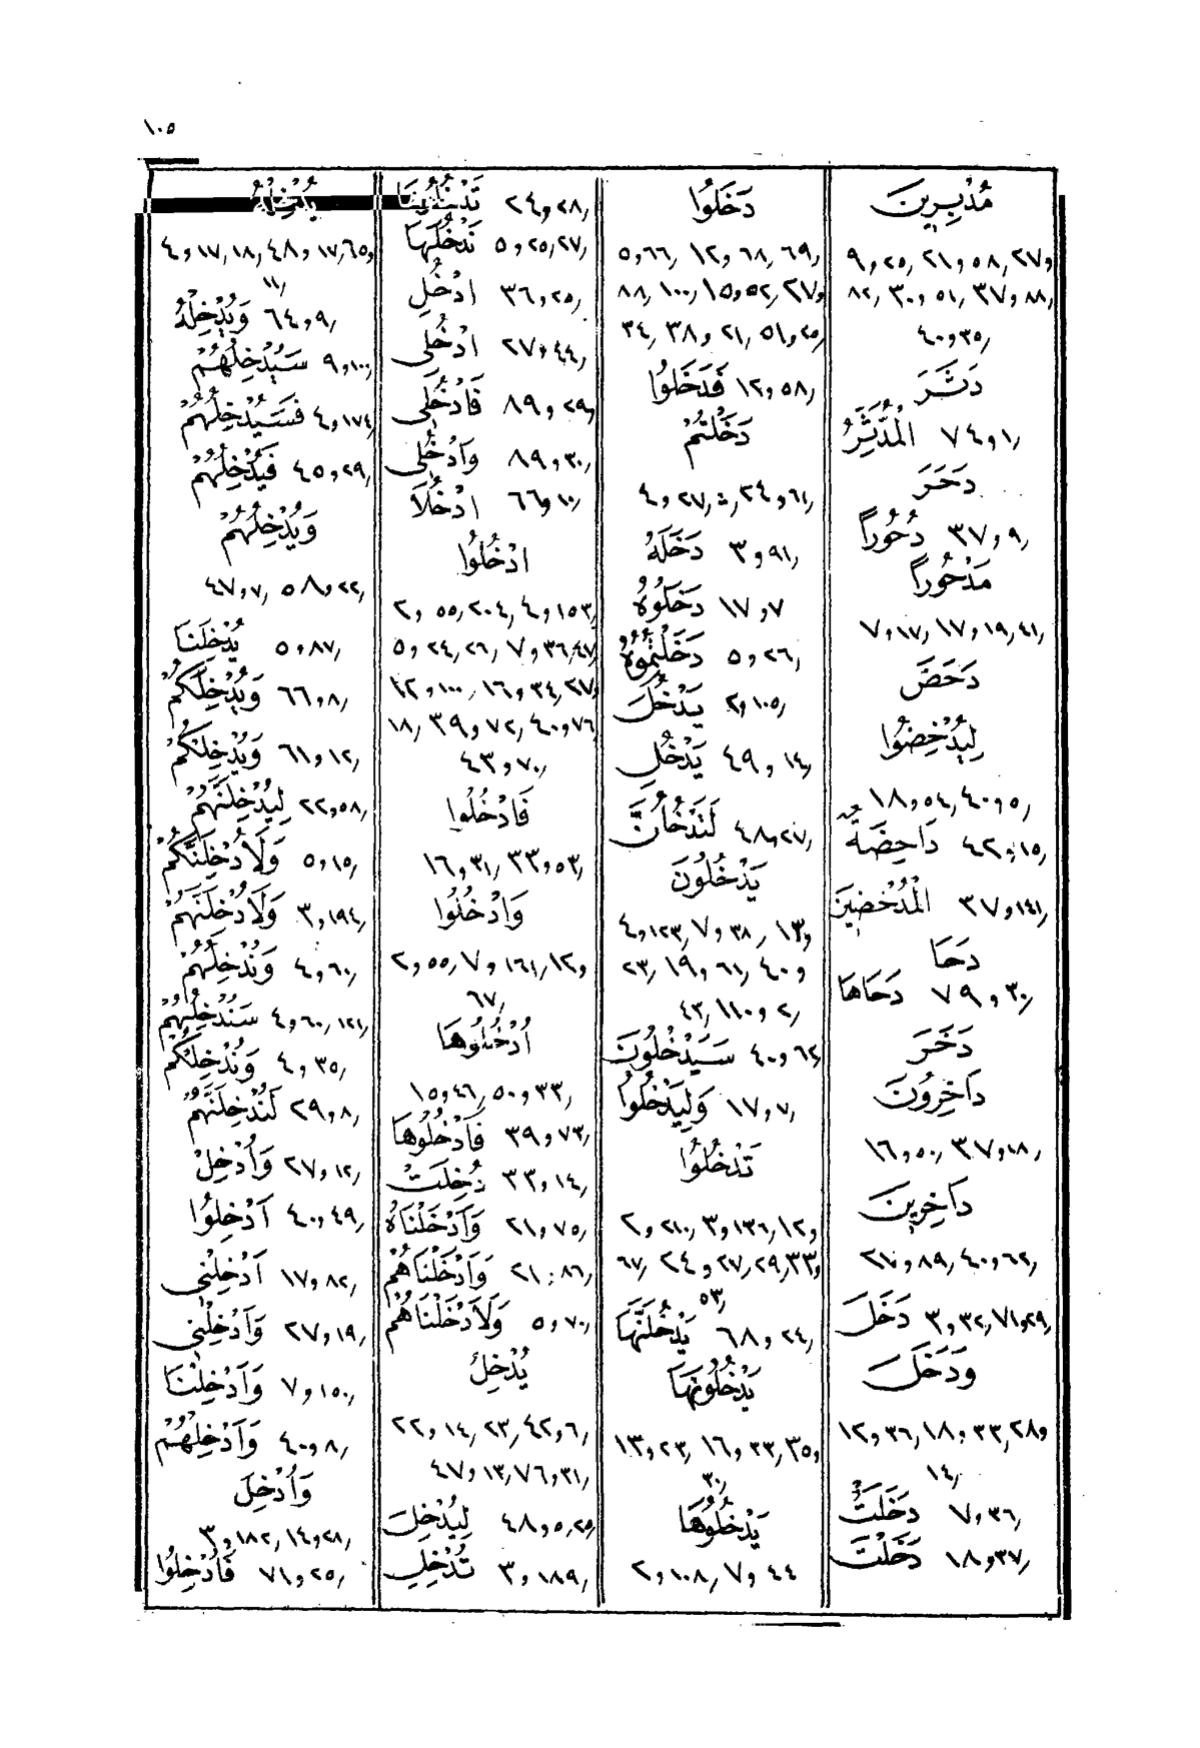 ١٠٥
مُدْبِرِينَ
٩و٢٥, ٢١و٥٨, ٢٧و
٨٢, ٣٠و٥١, ٣٧و٨٨,
٤٠و٣٥,
دَثَرَ
الْمُدَّثِّرُ ٧٤و١,
دَحَرَ
دُحُوراً ٣٧و٩,
مَدْحُوراً
٧و١٧, ١٧و١٩,٤١,
دَحَضَ
لِيُدْحِضُوا
١٨و٥٤, ٤٠و٥,
دَاحِضَةٌ ٤٢و١٥,
الْمُدْحَضِينَ ٣٧و١٤١,
دَحَا
دَحَاهَا ٧٩و٣٠,
دَخَرَ
دَاخِرُونَ
١٦و٥٠, ٣٧و١٨,
دَاخِرِينَ
٢٧و٨٩, ٤٠و٦٢,
دَخَلَ ٣و٣٢, ٧١و٢٩,
وَدَخَلَ
١٢و٣٦, ١٨و٣٣, ٢٨و
١٤,
دَخَلَتْ ٧و٣٦,
دَخَلْتَ ١٨و٣٧,
دَخَلُوا
٥و٦٦, ١٢و٦٨,٦٩,
٨٨,١٠٠, ١٥و٥٢, ٢٧و
٣٤, ٣٨و٢١, ٥١و٢٥,
فَدَخَلُوا ١٢و٥٨,
دَخَلْتُمْ
٤و٢٧, ٢٤و٦١,
دَخَلَهُ ٣و٩١,
دَخَلُوهُ ١٧و٧
دَخَلْتُمُوهُ ٥و٢٦,
يَدْخُلَ ٢و١٠٥,
يَدْخُلِ ٤٩و١٤,
لَتَدْخُلُنَّ ٤٨و٢٧,
يَدْخُلُونَ
٤و١٢٣, ٧و٣٨, ١٣و
٢٣, ١٩و٦١, ٤٠و
٤٣, ١١٠و٢,
سَيَدْخُلُونَ ٤٠و٦٢,
وَلِيَدْخُلُوا ١٧و٧,
تَدْخُلُوا
٢و٢١٠, ٣و١٣٦, ١٢و
٦٧, ٢٤و٢٧,٢٩, ٣٣و
٥٣,
يَدْخُلَنَّهَا ٦٨و٢٤,
يَدْخُلُونَهَا
١٣و٢٣, ١٦و٣٣, ٣٥و
٣٠,
يَدْخُلُوهَا
٢و١٠٨, ٧و٤٤
٢٤و٢٨,
نَدْخُلَهَا ٥و٢٥,٢٧,
ادْخُلِ ٣٦و٢٥,
ادْخُلِي ٢٧و٤٤,
فَادْخُلِي ٨٩و٢٩,
وَادْخُلِي ٨٩و٣٠,
ادْخُلَا ٦٦و١٠,
ادْخُلُوا
٢و٥٥,٢٠٤, ٤و١٥٣,
٥و٢٤,٢٦, ٧و٣٦,٤٧,
١٢و١٠٠, ١٦و٣٤, ٢٧و
١٨, ٣٩و٧٢, ٤٠و٧٦,
٤٣و٧٠,
فَادْخُلُوا
١٦و٣١, ٣٣و٥٣,
وَادْخُلُوا
٢و٥٥, ٧و١٦١, ١٢و
٦٧,
ادْخُلُوهَا
١٥و٤٦, ٥٠و٣٣,
فَادْخُلُوهَا ٣٩و٧٣,
دُخِلَتْ ٣٣و١٤,
وَأَدْخَلْنَاهُ ٢١و٧٥,
وَأَدْخَلْنَاهُمْ ٢١و٨٦,
وَلَأَدْخَلْنَاهُمْ ٥و٧٠,
يُدْخِلُ
٢٢و١٤,٢٣, ٤٢و٦,
٤٧و١٣, ٧٦و٣١,
لِيُدْخِلَ ٤٨و٥,٢٥,
تُدْخِلِ ٣و١٨٩,
يُدْخِلْهُ
٤و١٧,١٨, ٤٨و١٧, ٦٥و
١١,
وَيُدْخِلْهُ ٦٤و٩,
سَيُدْخِلُهُمْ ٩و١٠٠,
فَسَيُدْخِلُهُمْ ٤و١٧٤,
فَيُدْخِلُهُمْ ٤٥و٢٩,
وَيُدْخِلُهُمْ
٤٧و٧, ٥٨و٢٢,
يُدْخِلَنَا ٥و٨٧,
وَيُدْخِلَكُمْ ٦٦و٨,
وَيُدْخِلْكُمْ ٦١و١٢,
لَيُدْخِلَنَّهُمْ ٢٢و٥٨,
وَلَأُدْخِلَنَّكُمْ ٥و١٥,
وَلَأُدْخِلَنَّهُمْ ٣و١٩٤,
وَنُدْخِلُهُمْ ٤و٦٠,
سَنُدْخِلُهُمْ ٤و٦٠,١٢١,
وَنُدْخِلْكُمْ ٤و٣٥,
لَنُدْخِلَنَّهُمْ ٢٩و٨,
وَأَدْخِلْ ٢٧و١٢,
أَدْخِلُوا ٤٠و٤٩,
أَدْخِلْنِي ١٧و٨٢,
وَأَدْخِلْنِي ٢٧و١٩,
وَأَدْخِلْنَا ٧و١٥٠,
وَأَدْخِلْهُمْ ٤٠و٨,
وَأُدْخِلَ
٣و١٨٢, ١٤و٢٨,
فَأُدْخِلُوا ٧١و٢٥,